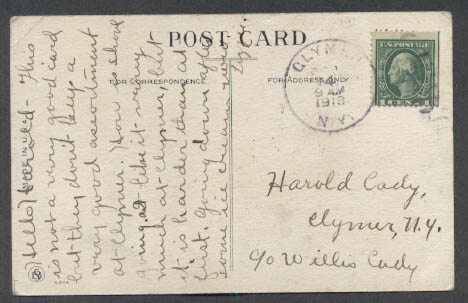 POST CARD
FOR CORRESPONDENCE
FOR ADDRESS ONLY
MADE IN U.S.A.
Hello Harold - This
is not a very good card
but they don't buy a
very good assortment
at Clymer. How is school
going, like it very
much at Clymer, but
it is harder than at
first. Going down after
some ice cream now
CLYMER
4
9 AM
1913
N.Y.
U.S. POSTAGE
1 CENT 1
Harold Cady,
Clymer, N.Y.
c/o Willis Cady